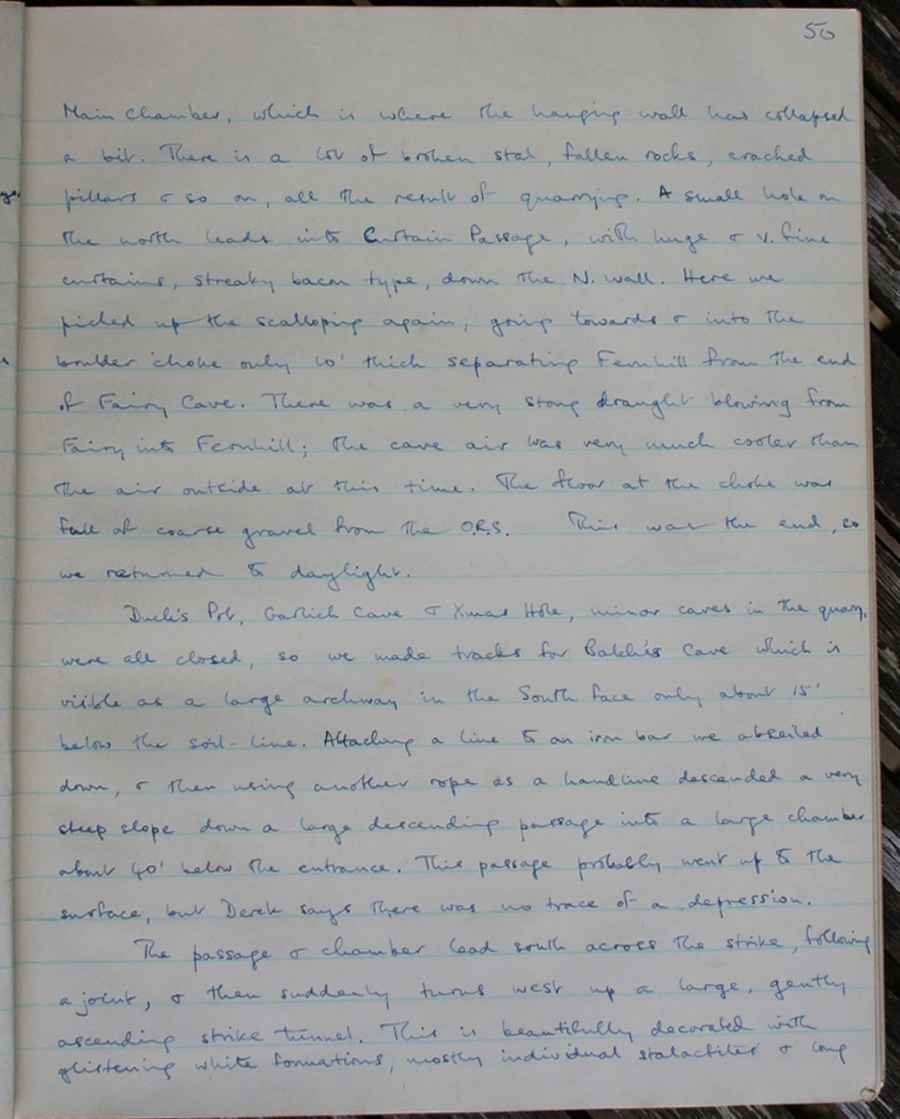 50
Main Chamber, which is where the hanging wall has collapsed
a bit. There is a lot of broken stal, fallen rocks, cracked
pillars & so on, all the result of quarrying. A small hole on
the north leads into Curtain Passage, with huge & v. fine
curtains, streaky bacon type, down the N. wall. Here we
picked up the scalloping again, going towards & into the
boulder choke only 10' thick separating Fernhill from the end
of Fairy Cave. There was a very strong draught blowing from
Fairy into Fernhill; the cave air was very much cooler than
the air outside at this time. The floor at the choke was
full of coarse gravel from the O.R.S. This was the end, so
we returned to daylight.
Duck's Pot, Garlich Cave & Xmas Hole, minor caves in the quarry,
were all closed, so we made tracks for Balch's Cave which is
visible as a large archway in the South face only about 15'
below the soil-line. Attaching a line to an iron bar we abseiled
down, & then using another rope as a handline descended a very
steep slope down a large descending passage into a large chamber
about 40' below the entrance. This passage probably went up to the
surface, but Derek says there was no trace of a depression.
The passage & chamber lead south across the strike, following
a joint, & then suddenly turns west up a large, gently
ascending strike tunnel. This is beautifully decorated with
glistening white formations, mostly individual stalactites & long